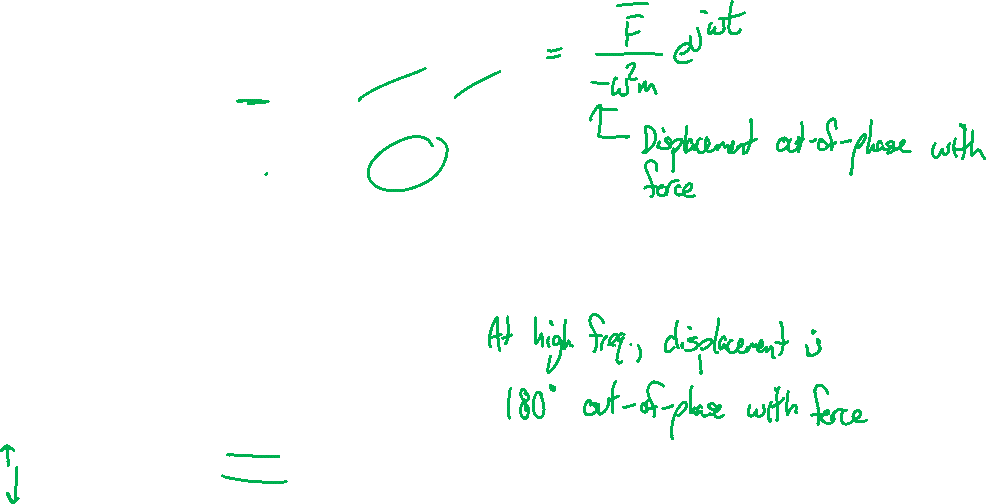 = F̄ / -ω²m e^jωt
Displacement out-of-phase with
force
At high freq., displacement is
180° out-of-phase with force
=